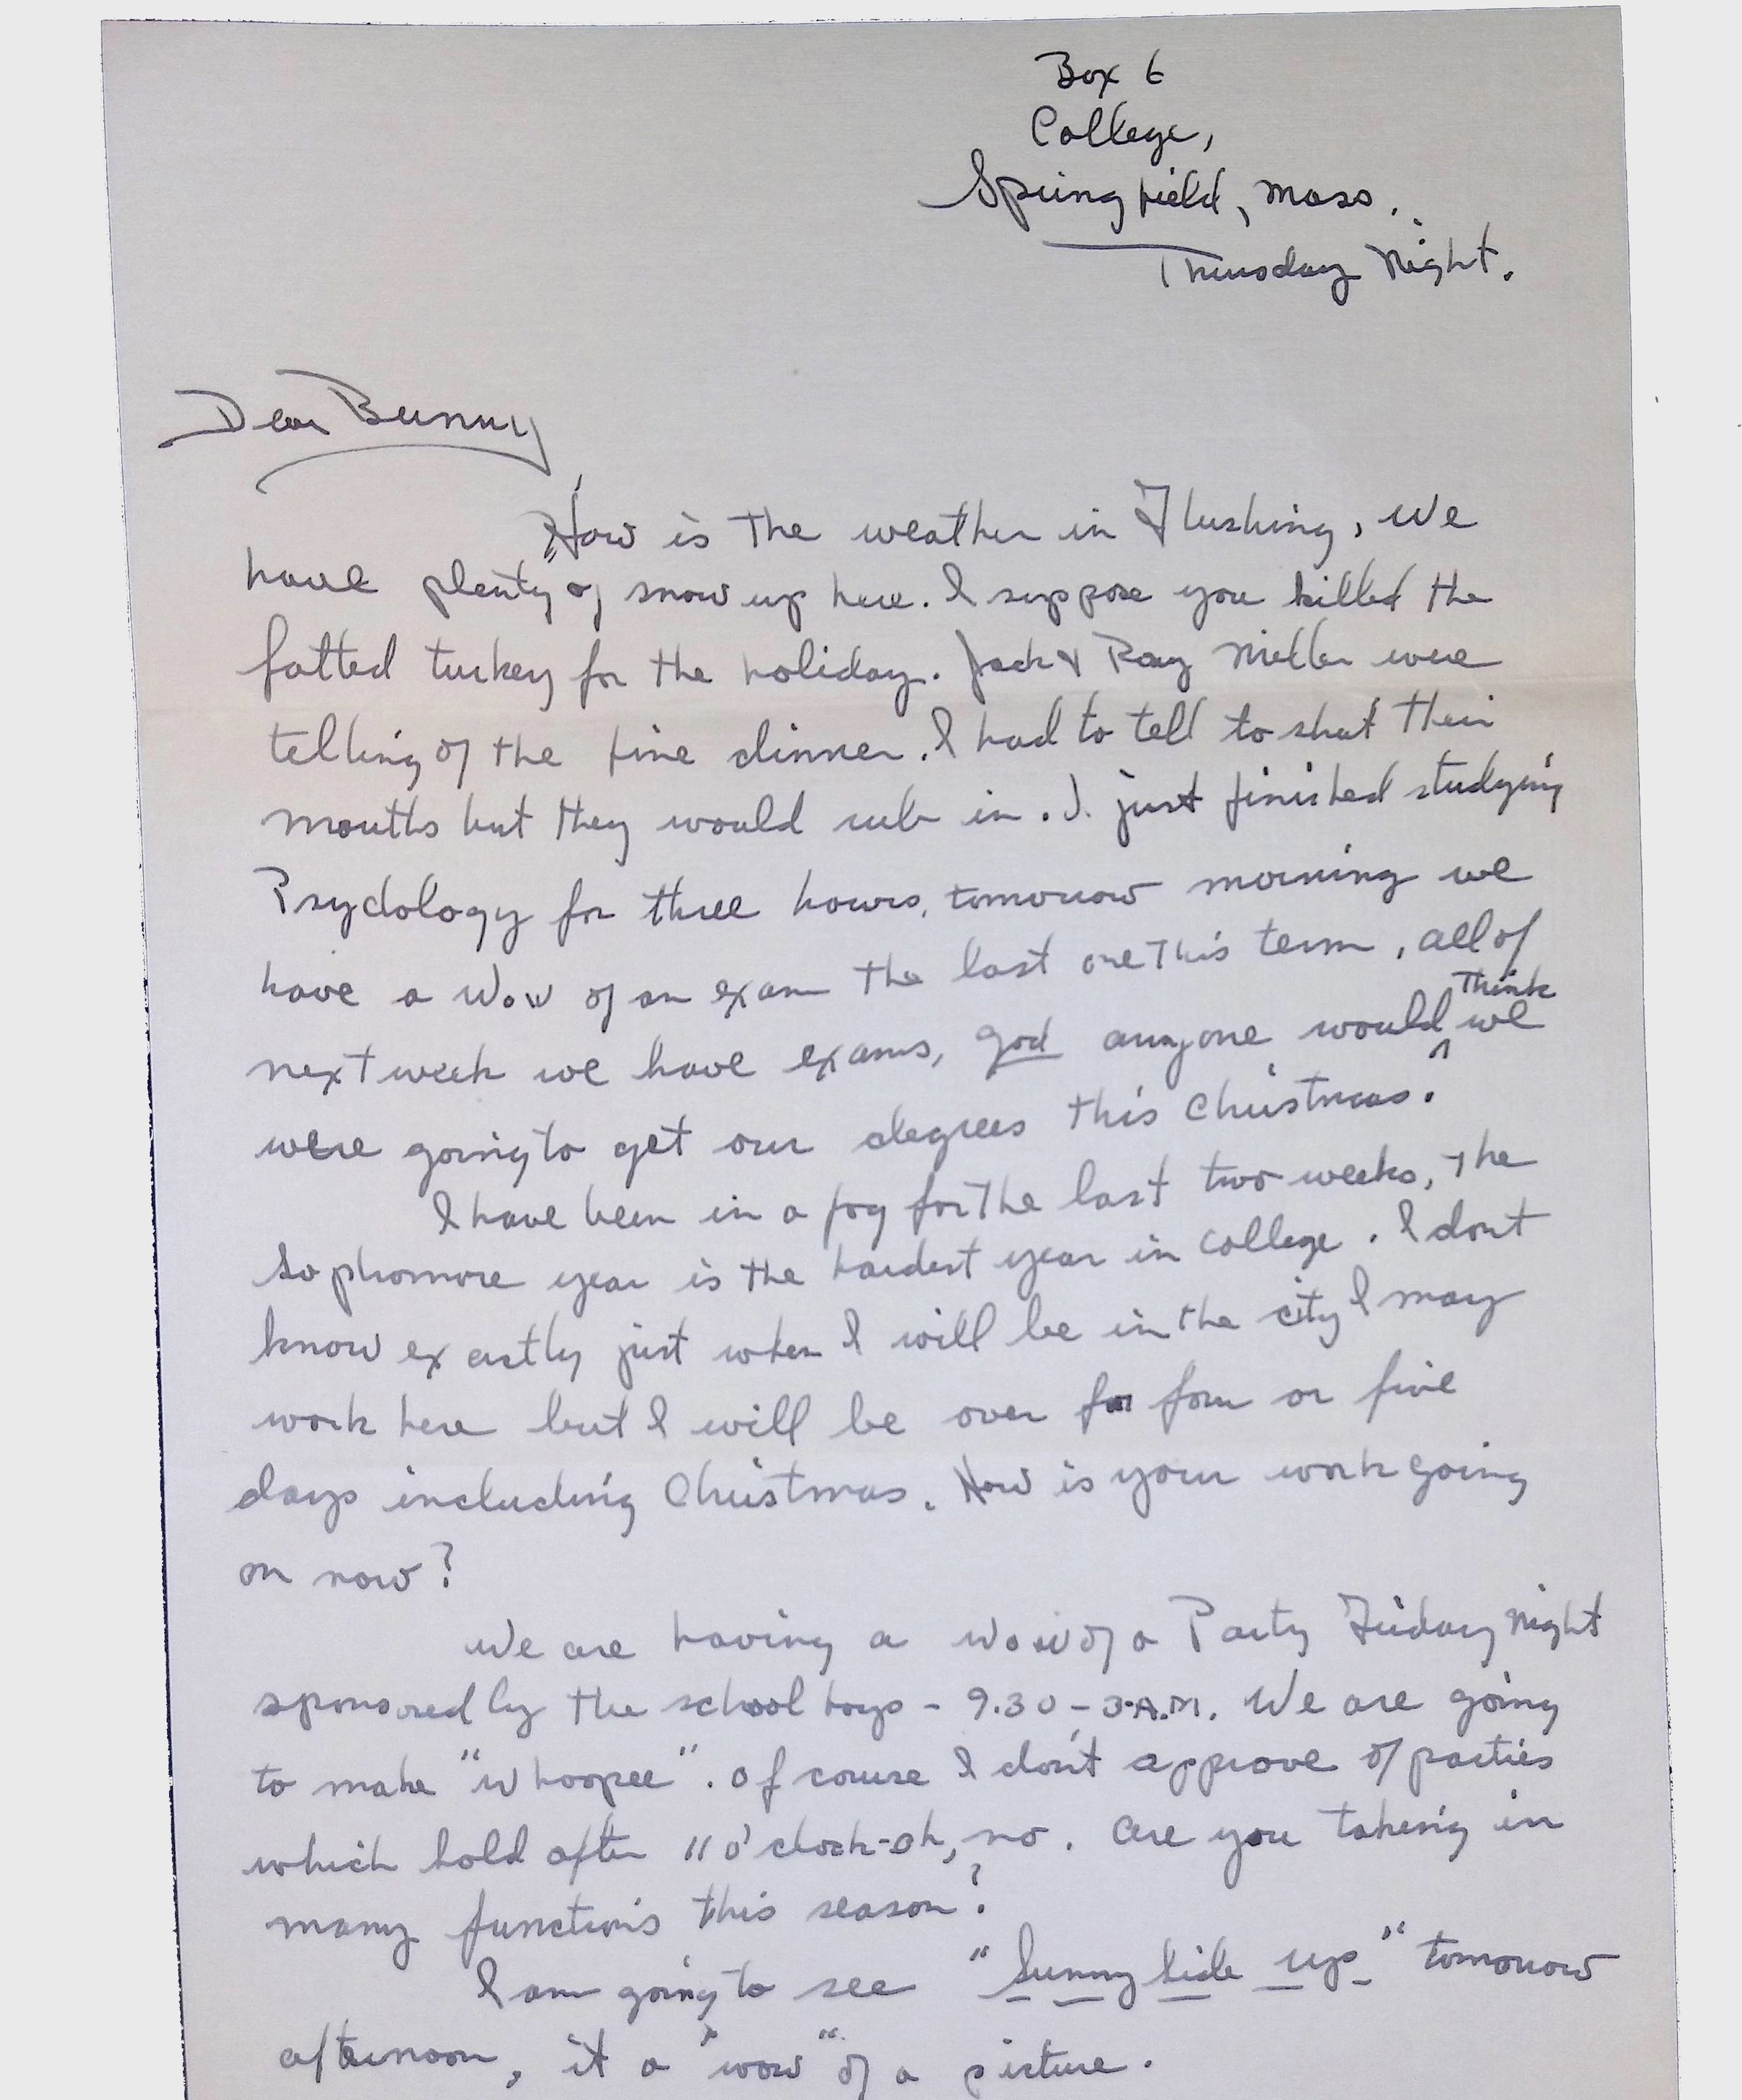 Box 6
College,
Springfield, Mass.
Thursday Night.
Dear Bunny
How is the weather in Flushing, We
have plenty of snow up here. I suppose you killed the
fatted turkey for the holiday. Jack & Ray Miller were
telling of the fine dinner. I had to tell to shut their
mouths but they would rub in. I just finished studying
Psydology for three hours, tomorrow morning we
have a Wow of an exam the last one this term, all of
next week we have exams, god anyone would think we
were going to get our degrees this Christmas.
I have been in a fog for the last two weeks, The
Sophomore year is the hardest year in college. I dont
know exactly just when I will be in the city I may
work here but I will be over for four or five
days including Christmas. How is your work going
on now?
We are having a Wow of a Party Friday Night
sponsored by the school boys - 9.30 - 3.A.M. We are going
to make "Whoopee". Of course I don't approve of parties
which hold after 11 o'clock - oh, no. Are you taking in
many functions this season?
I am going to see "Sunny Side Up" tomorrow
afternoon, it a "wow" of a picture.